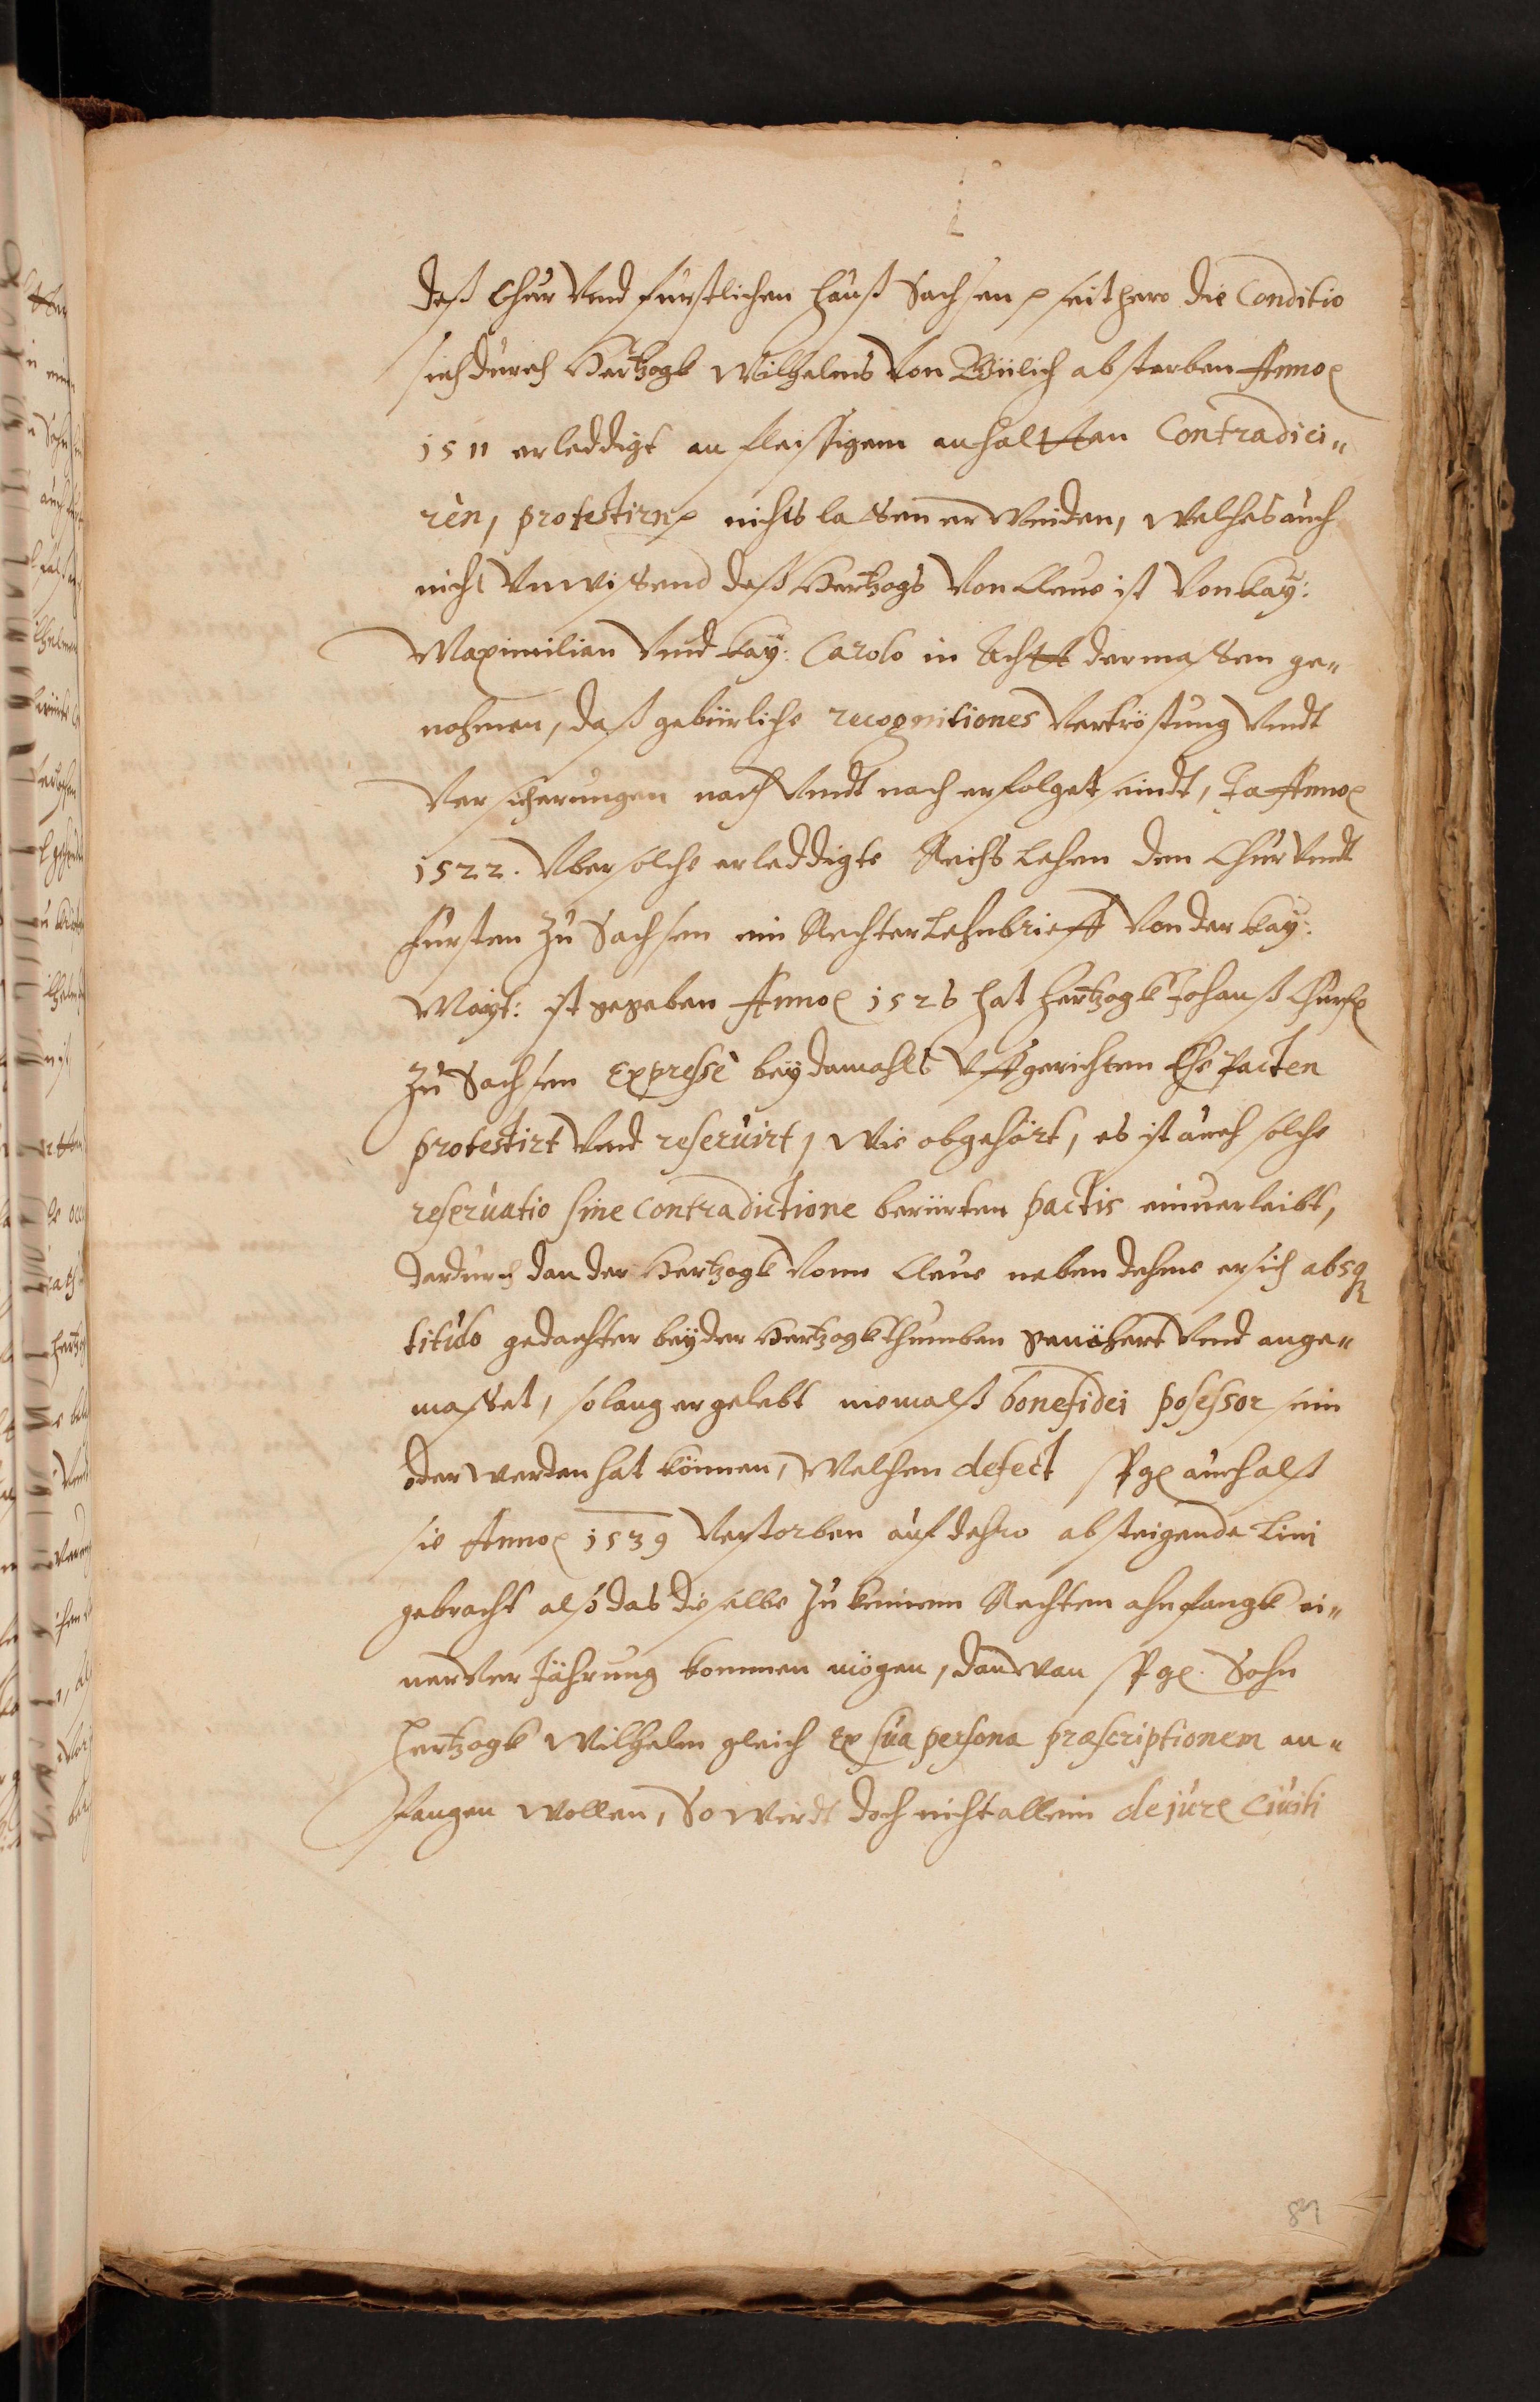 deß Chur Vnd fürstlichen hauß Sachsen seithero die Conditio
sich durch Hertzogk Wilhelms Von Gülich absterben Anno
1511 erleddigt an fleissigem anhaltten Contradici„
ren, protestirn nichts lassen erwinden, welches auch
nicht Vnwissend deß Hertzogs Von Cleue ist Von Kay:
Maximilian Vnd Kay: Carolo in Achtt dermassen ge„
nohmen, daß gebürliche recognitiones Vertröstung Vndt
Versicherungen nach Vndt nach erfolget seindt, Ja Anno
1522. Vber solche erleddigte Reichs Lehen den Chur Vndt
fürsten Zu Sachsen ein Rechter Lehnbrieff Von der Kay:
Mayt: ist gegeben Anno 1526 hat Hertzogk Johanß Churf
Zu Sachsen Expresse bey damahls Vffgerichten Ehe Pacten
protestirt Vnd reseruirt, Wie obgehört, es ist auch solche
reseruatio sine contradictione berürten pactis einuerleibt,
dardurch dan der Hertzogk Vonn Cleue neben dehme er sich absq
titulo gedachter beyder Hertzogkthumben genähert Vnd ange„
masset, solang er gelebt niemalß bonefidei possessor sein
oder werden hat können, Welchen defect auch alß
sie Anno 1539 Verstorben auf dehro absteigende Lini
gebracht also das dieselbe Zu keinem Rechten ahnfangk ei„
ner Ver Jährung kommen mögen, dan wan Sohn
Hertzogk Wilhelm gleich Ex sua persona præscriptionem an„
fangen wollen, So wirdt doch nicht allein de jure Ciuili